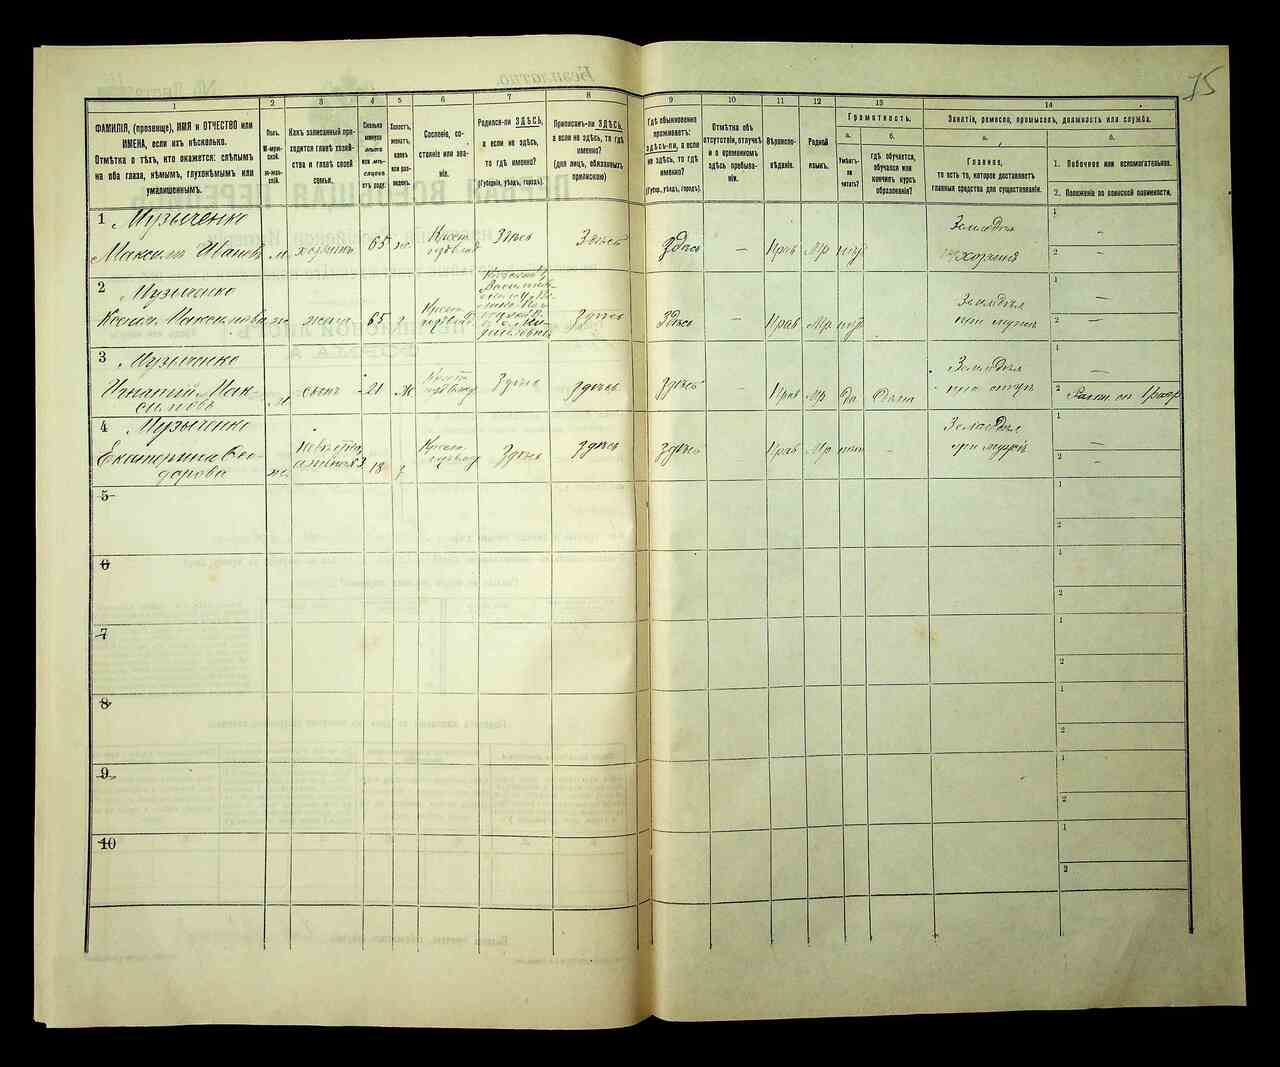 75
1
2
3
4
5
6
7
8
9
10
11
12
13
14
ФАМИЛІЯ, (прозвище), ИМЯ и ОТЧЕСТВО или
ИМЕНА, если ихъ нѣсколько.
Отмѣтка о тѣхъ, кто окажется: слѣпымъ
на оба глаза, нѣмымъ, глухонѣмымъ или
умалишеннымъ.
Полъ.
М-мужской.
Ж-женскій.
Какъ записанный при-
ходится главѣ хозяй-
ства и главѣ своей
семьи.
Сколько
минуло
лѣтъ
или мѣ-
сяцевъ
отъ роду.
Холостъ,
женатъ,
вдовъ
или раз-
веденъ.
Сословіе, со-
стояніе или зва-
ніе.
Родился-ли ЗДѢСЬ,
а если не здѣсь,
то гдѣ именно?
(Губернія, уѣздъ, городъ).
Приписанъ-ли ЗДѢСЬ,
а если не здѣсь, то гдѣ
именно?
(для лицъ, обязанныхъ
припискою)
Гдѣ обыкновенно
проживаетъ:
здѣсь-ли, а если
не здѣсь, то гдѣ
именно?
(Губер., уѣздъ, городъ).
Отмѣтка объ
отсутствіи, отлучкѣ
и о временномъ
здѣсь пребыва-
ніи.
Вѣроиспо-
вѣданіе.
Родной
языкъ.
Грамотность.
а.
б.
Умѣетъ-
ли
читать?
гдѣ обучается,
обучался или
кончилъ курсъ
образованія?
Занятіе, ремесло, промыселъ, должность или служба.
а.
б.
Главное,
то есть то, которое доставляетъ
главныя средства для существованія.
1. Побочное или вспомогательное.
2. Положеніе по воинской повинности.
1 Музыченко
Максимъ Ивановъ м хозяинъ 65 ж Крест Здѣсь Здѣсь Здѣсь — Прав Мр
Земледѣл
хозяинъ
1 —
2 —
2 Музыченко
Максимова ж жена 65 Крест здѣсь Здѣсь — Прав Мр
Земледѣл
при мужѣ
1 —
2 —
3 Музыченко
Игнатій Мак-
симовъ м сынъ 21 ж Крест Здѣсь здѣсь здѣсь — Прав Мр да
Земледѣл
при отцѣ
1 —
2
4 Музыченко
Екатерина Фео-
дорова ж Невѣстка 18 Крест Здѣсь здѣсь здѣсь — Прав Мр нѣт —
Земледѣл
при мужѣ
1 —
2 —
5
1
2
6
1
2
7
1
2
8
1
2
9
1
2
10
1
2